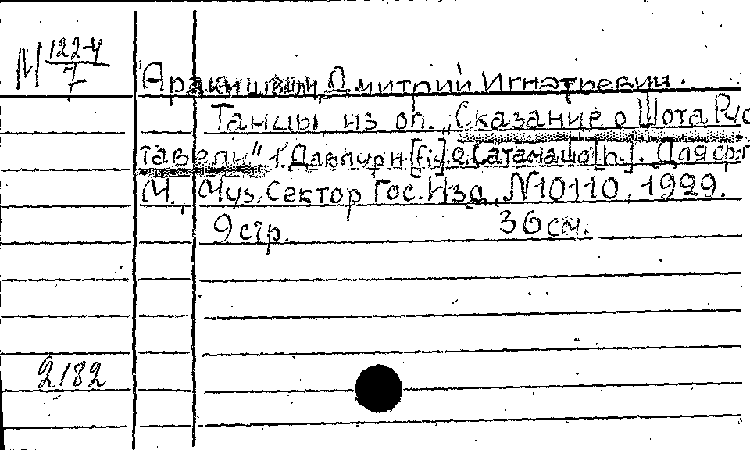 М 122-4
7
Аракишвили, Дмитрий Игнатьевич.
Танцы из оп. „Сказание о Шота Рус
тавели" 1. Давлури [fis] 2. Сатамашо [h.]. Для ф.п
М., Муз. Сектор Гос. Изд. N10110, 1929.
9 стр. 36 см.
2182